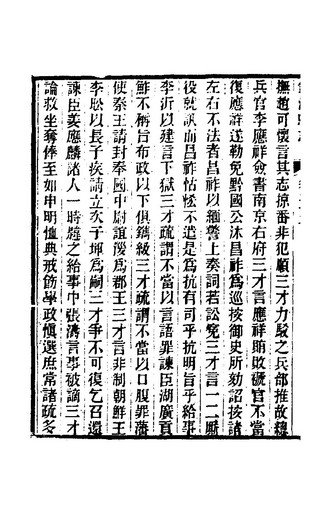 撫趙可懷言其志掠番非犯順三才力駁之兵部推故總
兵官李應祥僉書南京右府三才言應祥賄敗僨官不當
復應祥遂勒免黔國公沐昌祚為巡按御史所劾詔按諸
左右不法者昌祚以緬警上奏詞若訟寃三才言一二厮
役就訊而昌祚怙恃不遣是為抗有司乎抗明旨乎給事
李沂以建言下獄三才疏謂不當以言語罪諫臣湖廣貢
鮓不稱旨布政以下俱鐫級三才疏謂不當以口腹罪藩
使秦王請封奉國中尉誼㴶為郡王三才言非制朝鮮王
李昖以長子疾請立次子琿為嗣三才爭不可復乞召還
諫臣姜應麟諸人一時韙之給事中張濤言事被謫三才
論救坐奪俸至如申明恤典戒飭學政慎選庶常諸疏多